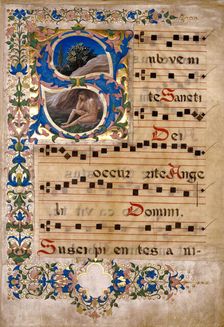 Subvem
nte Sancti
Dei
occur rite Ange
li Domini.
Suscipi entes a ni-